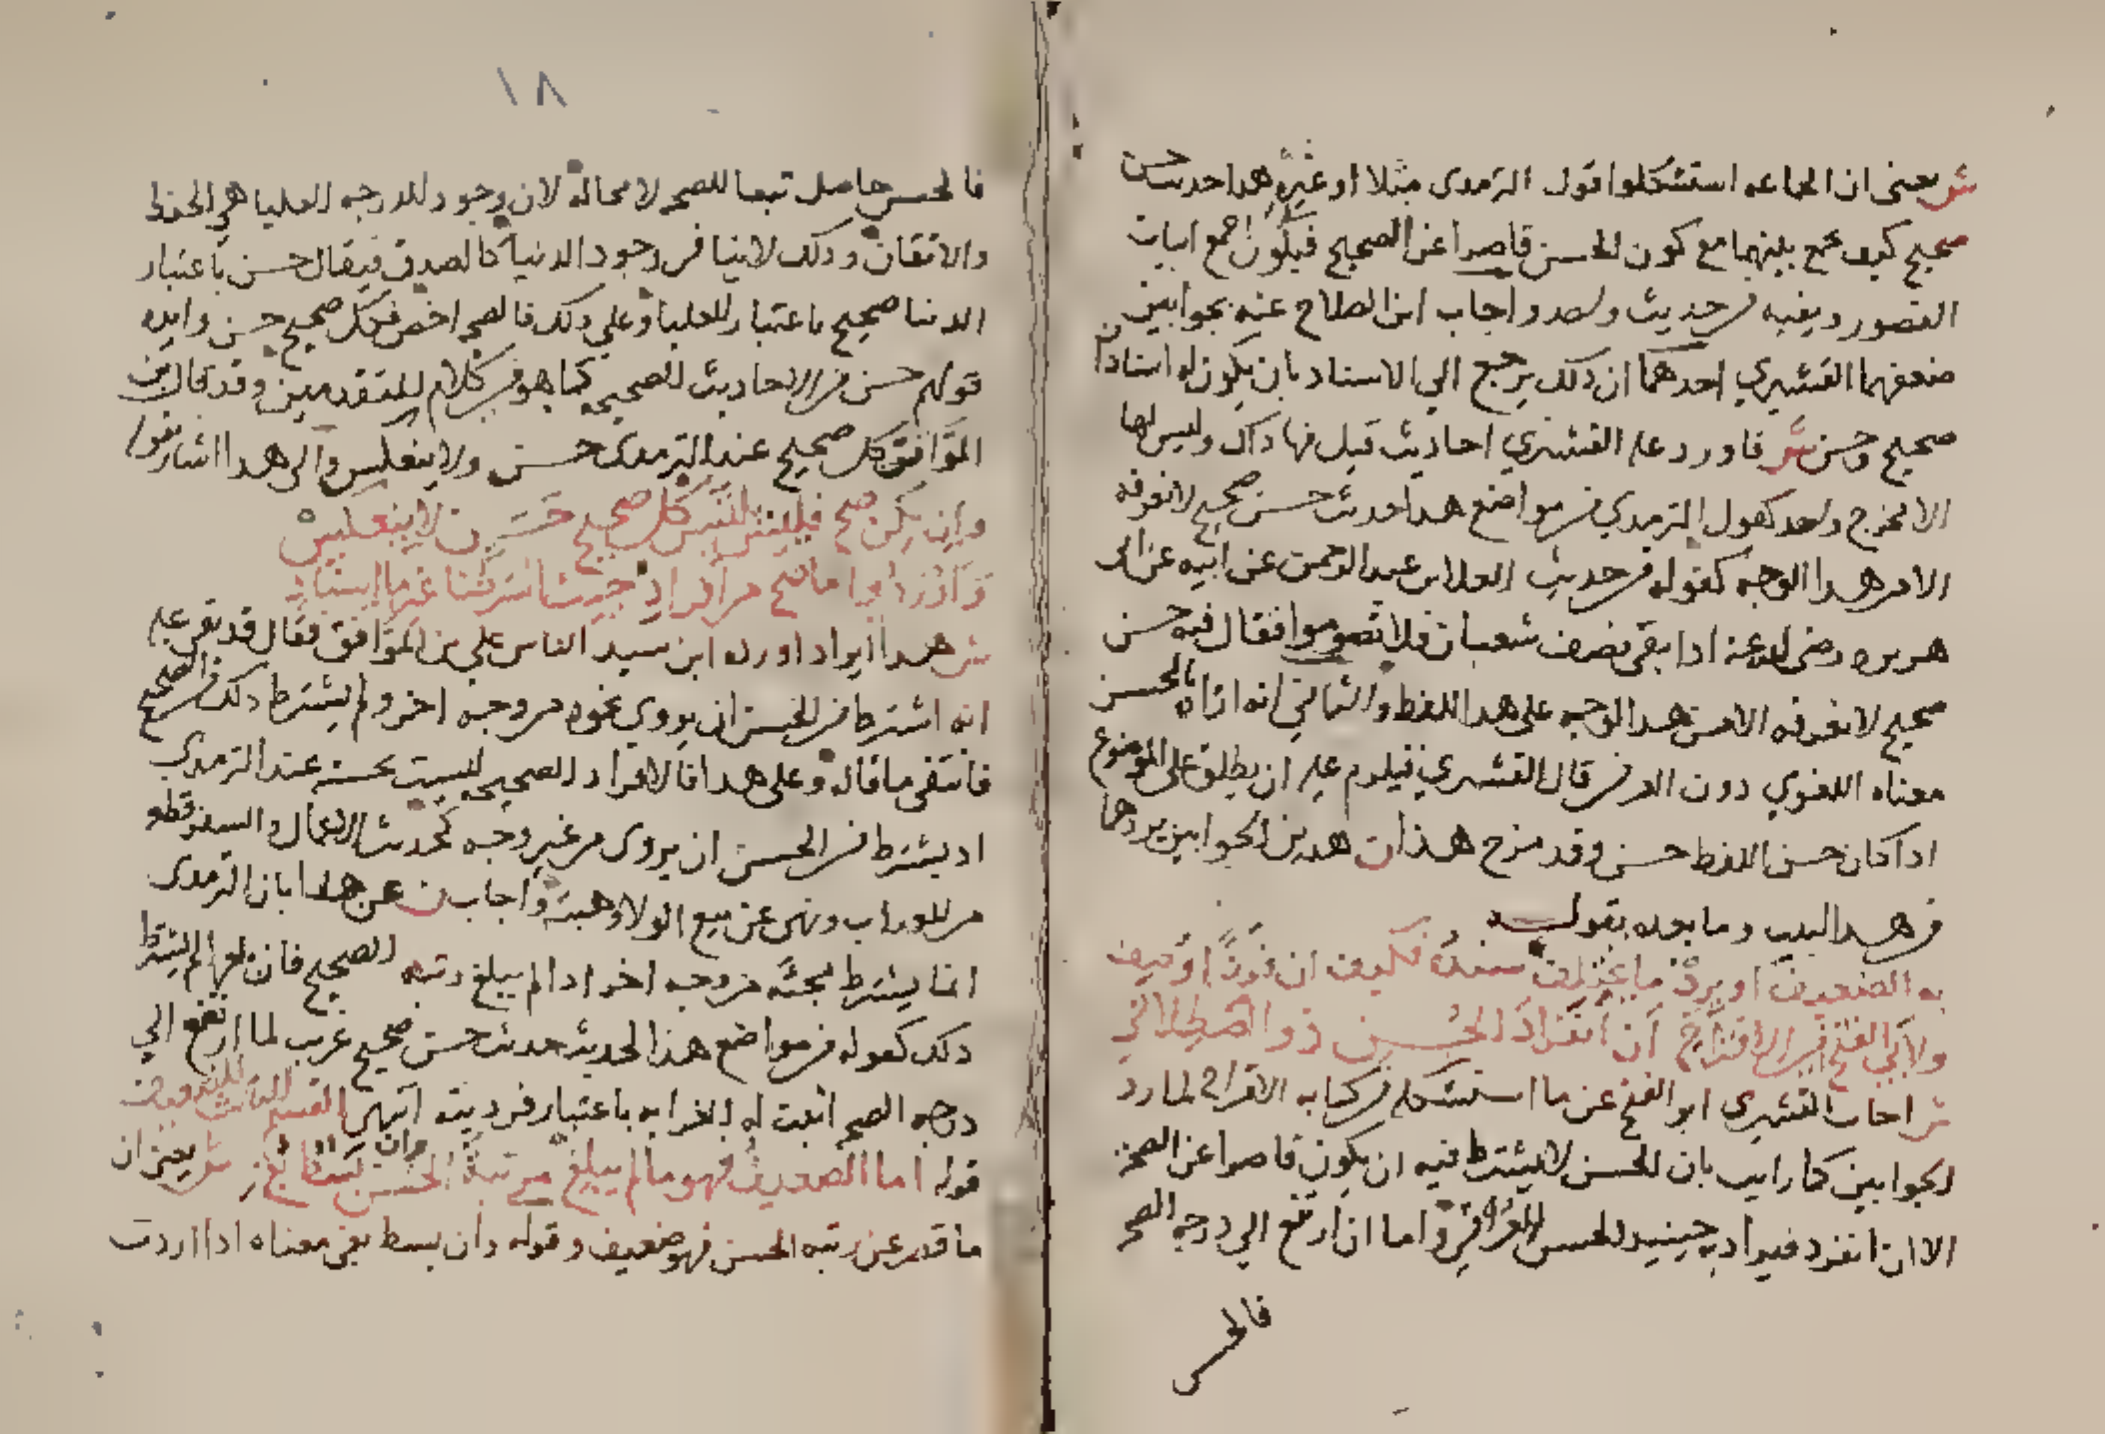 ش يعنى ان الجماعه استشكلوا قول الترمدى مثلا او غيره هدا حديث حسن
صحيح كيف يجمع بينهما مع كون الحسن قاصرا عن الصحيح فيكون جمع اثبات
القصور ونفيه فى حديث واحد واجاب ابن الصلاح عنه بجوابين
ضعفهما القشيري احدهما ان دلك يرجع الي الاسناد بان يكون له اسنادان
صحيح وحسن ش فاورد عليه القشيري احاديث قيل فيها داك وليس لها
الا مخرج واحد كقول الترمدي فى مواضع هدا حديث حسن صحيح لا نعرفه
الا من هدا الوجه كقوله فى حديث العلا بن عبد الرحمن عن ابيه عن ابى
هريره رضى الله عنه ادا بقى نصف شعبان فلا تصوموا فقال فيه حسن
صحيح لا نعرفه الا من هدا الوجه على هدا اللفظ والثاني انه اراد بالحسن
معناه اللغوي دون العرفى قال القشيري فيلزم عليه ان يطلق على الموضوع
ادا كان حسن اللفظ حسن وقد مزج هذا ن هدين الجوابين بردهما
فى هدا البيت وما بعده بقوله
به الضعيف او يرد ما يختلف سنده فكيف ان فرد وصف
ولابي الفتح فى الاقتراح ان انفراد الحسن ذو اصطلاح
ش اجاب القشيري ابو الفتح عن ما استشكله فى كتابه الاقتراح لما رد
الجوابين كما رايت بان الحسن لا يشترط فيه ان يكون قاصرا عن الصحة
الا ان انفرد فيراد به حينيد الحسن العرافى واما ان ارتفع الي درجه الصحه
فالحسن
١٨
فالحسن حاصل تبعا للصحه لا محالة لان وجود الدرجه العليا هي الحفظ
والاتقان ودلك لا ينافى وجود الدنيا كالصدق فيقال حسن باعتبار
الدنيا صحيح باعتبار العليا وعلي دلك فالصحه اخص فكل صحيح حسن وايده
قولهم حسن فى الاحاديث الصحيحه كما هو فى كلام المتقدمين وقد قال ابن
المواق كل صحيح عند الترمدى حسن ولا ينعكس والى هدا اشار بقوله
وان يكن صح فليس يلتبس كل صحيح حسن لا ينعكس
واوردوا ما صح من افراد حيث اشترطنا غير ما اسناد
ش هدا ايراد اورده ابن سيد الناس علي بن المواق فقال قد بقى عليه
انه اشترط فى الحسن ان يروي نحوه من وجه اخر ولم يشترط دلك فى الصحيح
فانتفى ما قاله وعلى هدا فالافراد الصحيحه ليست بحسنه عند الترمدي
اد يشترط فى الحسن ان يروى من غير وجه كحديث الاعمال والسفر قطعه
من العداب ونهى عن بيع الولا وهبته واجاب ن عن هدا بان الترمدى
انما يشترط مجئه من وجه اخر ادا لم يبلغ رتبه الصحيح فان بلغها لم يشترط
دلك كقوله فى مواضع هذا الحديث حديث حسن صحيح غريب لما ارتفع الي
درجه الصحه اثبت له الغرابه باعتبار فرديته انتهى القسم الثالث الضعيف
قوله اما الضعيف فهو ما لم يبلغ مرتبة الحسن وان بسط بغي ش يعنى ان
ما قصر عن رتبه الحسن فهو ضعيف وقوله وان بسط بغى معناه ادا اردت